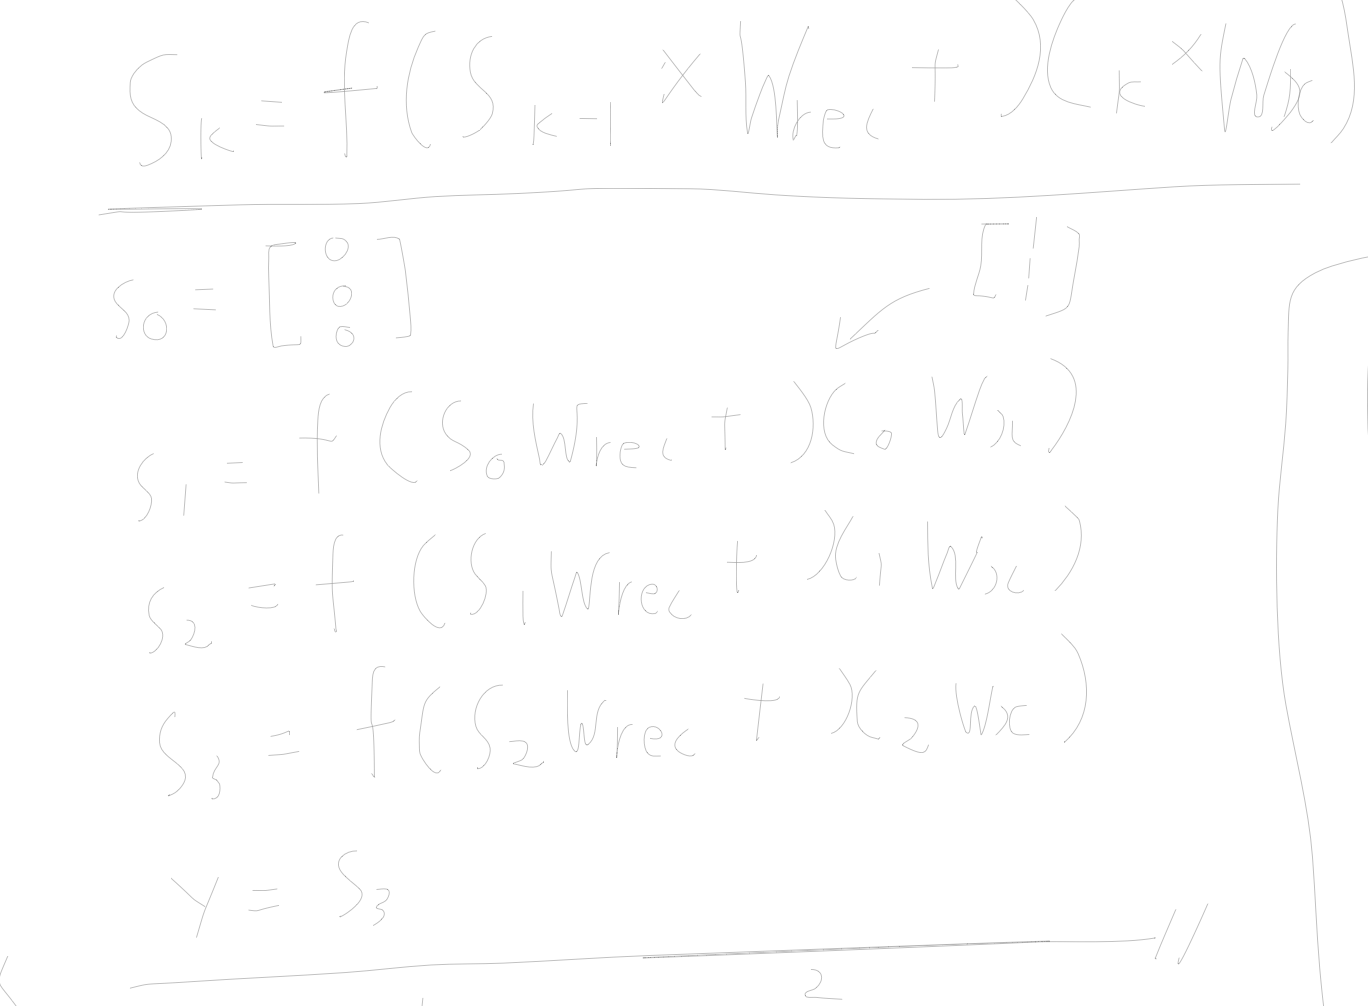 S_k = f(S_{k-1} × W_rec + X_k × W_x)
S_0 = [0 0 0]
[1]
S_1 = f(S_0 W_rec + X_0 W_x)
S_2 = f(S_1 W_rec + X_1 W_x)
S_3 = f(S_2 W_rec + X_2 W_x)
Y = S_3
2